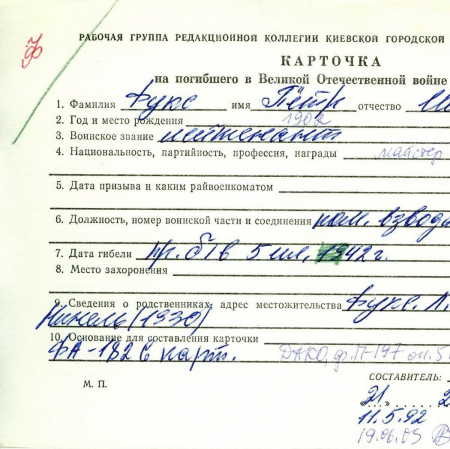 Ф
РАБОЧАЯ ГРУППА РЕДАКЦИОННОЙ КОЛЛЕГИИ КИЕВСКОЙ ГОРОДСКОЙ
КАРТОЧКА
на погибшего в Великой Отечественной войне
1. Фамилия Фукс имя Пётр отчество
2. Год и место рождения 1902
3. Воинское звание лейтенант
4. Национальность, партийность, профессия, награды майстер
5. Дата призыва и каким райвоенкоматом
6. Должность, номер воинской части и соединения ком. взвода
7. Дата гибели пр. б/в 5 1942 г.
8. Место захоронения
9. Сведения о родственниках, адрес местожительства Фукс Л.
Нинель (1930)
10. Основание для составления карточки
ФА-182 6 карт. ДАКО, ф. П-197 оп. 5
СОСТАВИТЕЛЬ:
М. П. 21 2
11.5.92
19.06.05